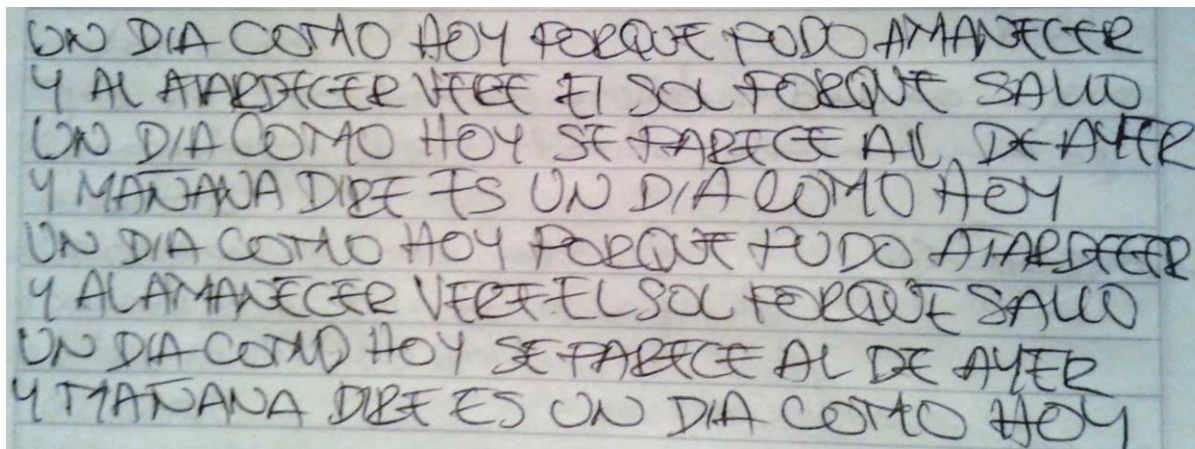 UN DIA COMO HOY PORQUE PUDO AMANECER
Y AL ATARDECER VERE El SOL PORQUE SALIO
UN DIA COMO HOY SE PARECE AL DE AYER
Y MAÑANA DIRE ES UN DIA COMO HOY
UN DIA COMO HOY PORQUE PUDO ATARDECER
Y AL AMANECER VERE EL SOL PORQUE SALIO
UN DIA COMO HOY SE PARECE AL DE AYER
Y MAÑANA DIRE ES UN DIA COMO HOY